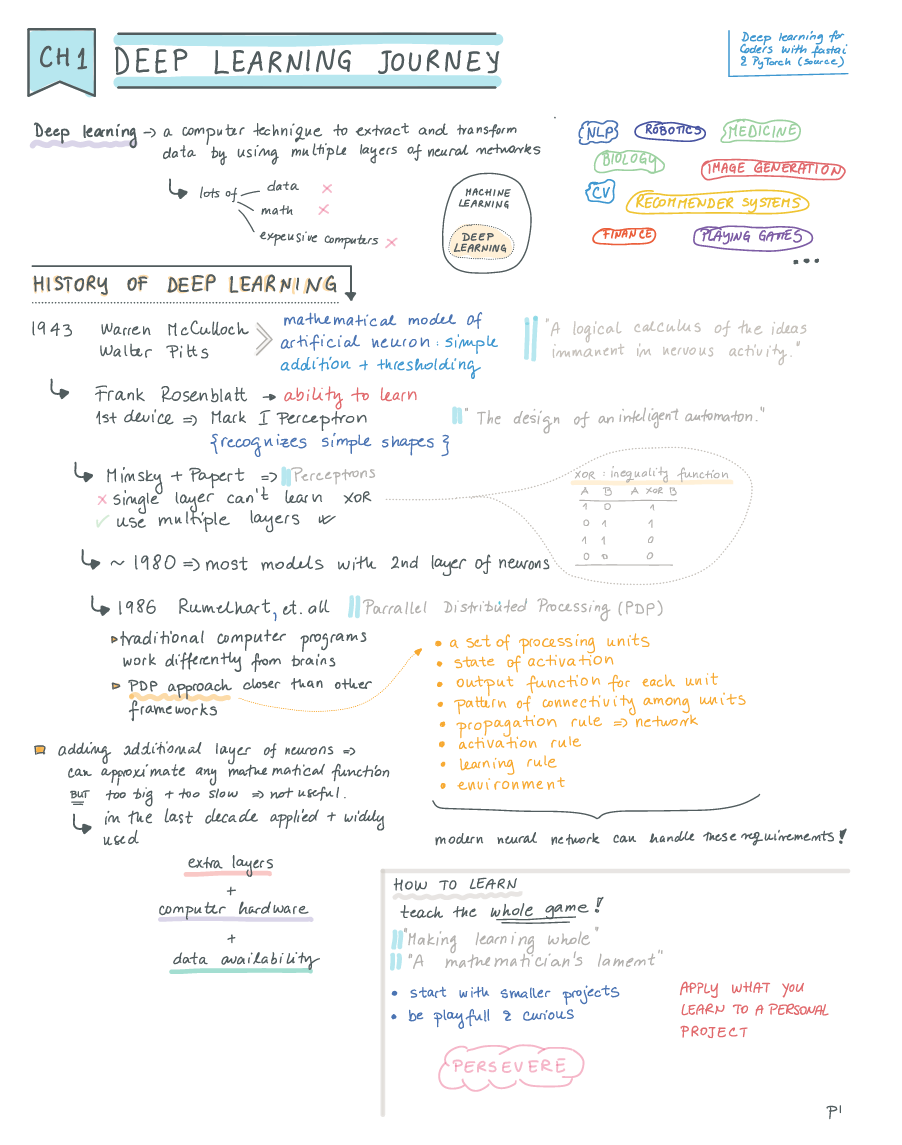 CH1
DEEP LEARNING JOURNEY
Deep learning for
Coders with fastai
& PyTorch (source)
Deep learning → a computer technique to extract and transform
data by using multiple layers of neural networks
↳ lots of
data ×
math ×
expensive computers ×
MACHINE
LEARNING
DEEP
LEARNING
NLP
ROBOTICS
MEDICINE
BIOLOGY
IMAGE GENERATION
CV
RECOMMENDER SYSTEMS
FINANCE
PLAYING GAMES
...
HISTORY OF DEEP LEARNING
1943 Warren McCulloch
Walter Pitts
mathematical model of
artificial neuron: simple
addition + thresholding
"A logical calculus of the ideas
immanent in nervous activity."
↳ Frank Rosenblatt → ability to learn
1st device ⇒ Mark I Perceptron
{recognizes simple shapes}
"The design of an inteligent automaton."
↳ Minsky + Papert ⇒ Perceptrons
× single layer can't learn XOR
✓ use multiple layers
XOR: inequality function
A B A XOR B
1 0 1
0 1 1
1 1 0
0 0 0
↳ ~ 1980 ⇒ most models with 2nd layer of neurons
↳ 1986 Rumelhart, et. all Parrallel Distributed Processing (PDP)
▹ traditional computer programs
work differently from brains
▹ PDP approach closer than other
frameworks
• a set of processing units
• state of activation
• output function for each unit
• pattern of connectivity among units
• propagation rule ⇒ network
• activation rule
• learning rule
• environment
modern neural network can handle these requirements!
adding additional layer of neurons ⇒
can approximate any mathematical function
BUT too big + too slow ⇒ not useful.
↳ in the last decade applied + widely
used
extra layers
+
computer hardware
+
data availability
HOW TO LEARN
teach the whole game!
"Making learning whole"
"A mathematician's lament"
• start with smaller projects
• be playfull & curious
APPLY WHAT YOU
LEARN TO A PERSONAL
PROJECT
PERSEVERE
P1